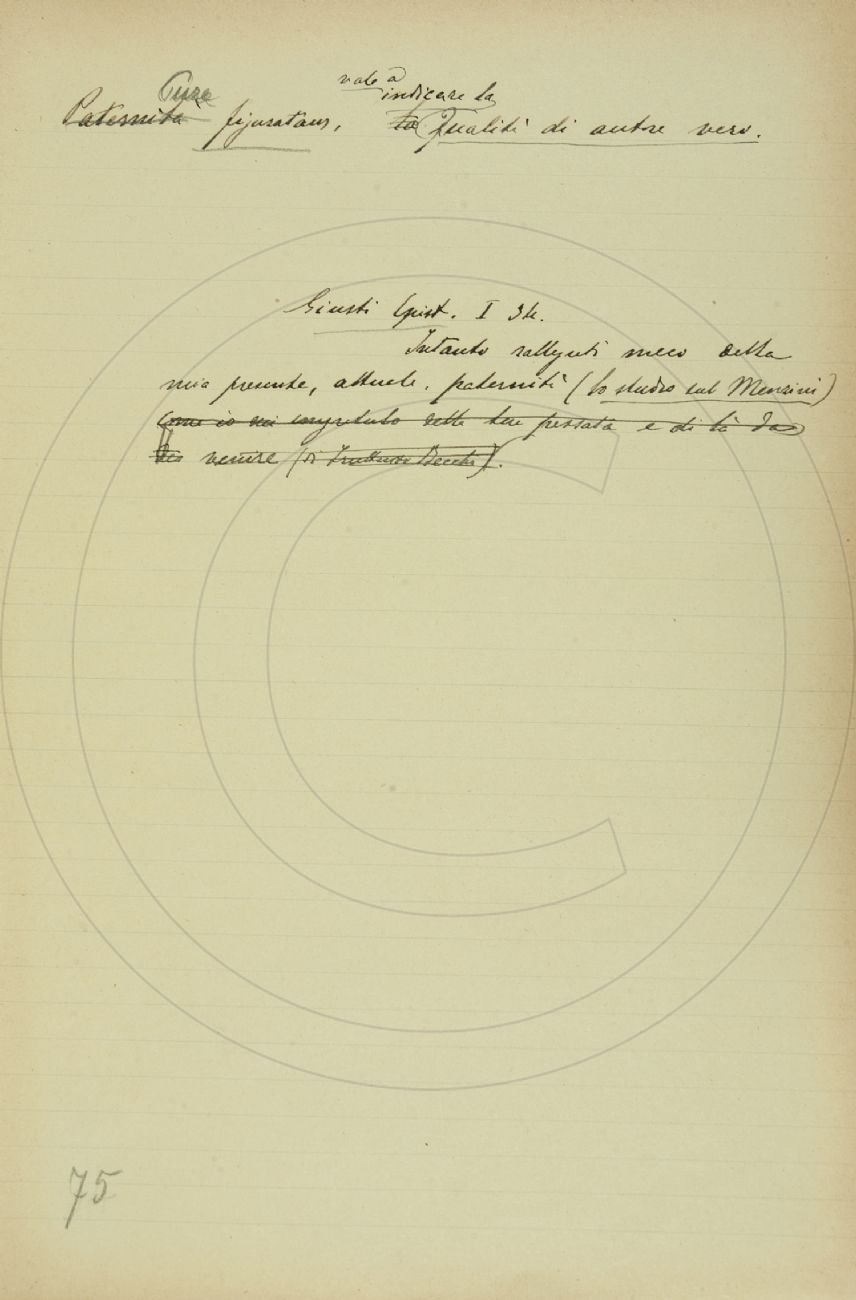 Pure
vale a
indicare la
Paternità figuratam, la Qualità di autore vero.
Giusti Epist. I 34.
Intanto rallegrati meco della
mia presente, attuale. paternità (lo studio sul Menzini)
Come io mi congratulo della tua passata e di là da
venire
75